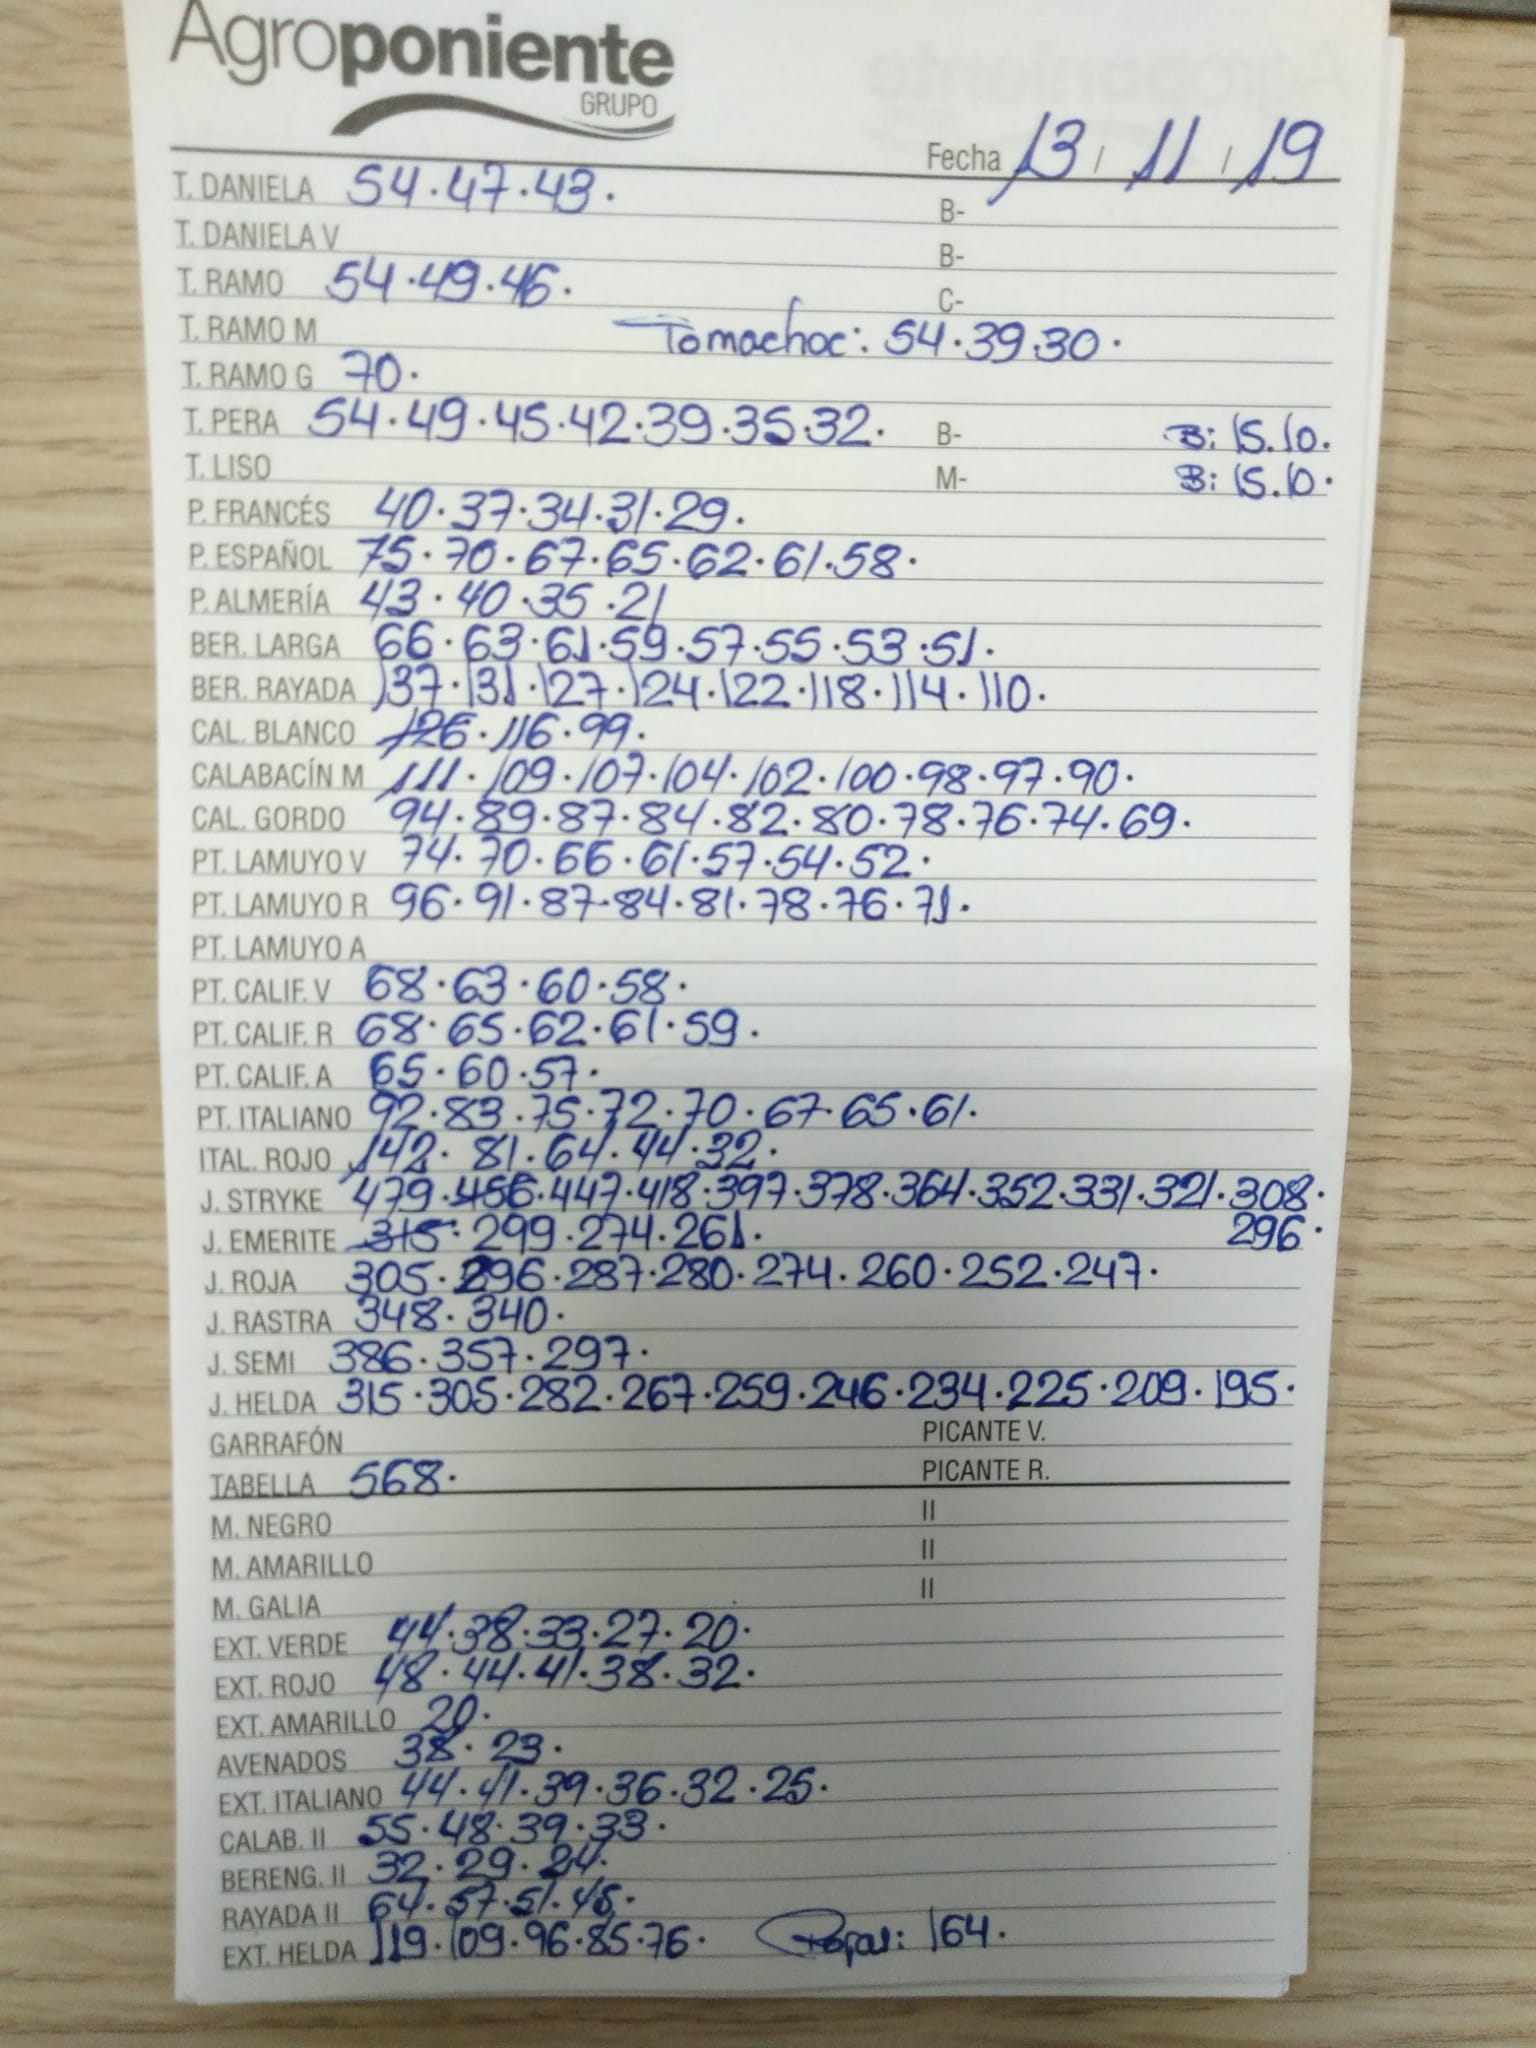 Agroponiente
GRUPO
Fecha 13 / 11 / 19
T. DANIELA 54.47.43. B-
T. DANIELA V B-
T. RAMO 54.49.46. C-
T. RAMO M Tomachoc: 54.39.30.
T. RAMO G 70.
T. PERA 54.49.45.42.39.35.32. B- B: 15.10.
T. LISO M- B: 15.10.
P. FRANCÉS 40.37.34.31.29.
P. ESPAÑOL 75.70.67.65.62.61.58.
P. ALMERÍA 43.40.35.21
BER. LARGA 66.63.61.59.57.55.53.51.
BER. RAYADA 137.131.127.124.122.118.114.110.
CAL. BLANCO 126.116.99.
CALABACÍN M 111.109.107.104.102.100.98.97.90.
CAL. GORDO 94.89.87.84.82.80.78.76.74.69.
PT. LAMUYO V 74.70.66.61.57.54.52.
PT. LAMUYO R 96.91.87.84.81.78.76.71.
PT. LAMUYO A
PT. CALIF. V 68.63.60.58.
PT. CALIF. R 68.65.62.61.59.
PT. CALIF. A 65.60.57.
PT. ITALIANO 92.83.75.72.70.67.65.61.
ITAL. ROJO 142.81.64.44.32.
J. STRYKE 479.456.447.418.397.378.364.352.331.321.308.
296.
J. EMERITE 315.299.274.261.
J. ROJA 305.296.287.280.274.260.252.247.
J. RASTRA 348.340.
J. SEMI 386.357.297.
J. HELDA 315.305.282.267.259.246.234.225.209.195.
GARRAFÓN PICANTE V.
TABELLA 568. PICANTE R.
M. NEGRO II
M. AMARILLO II
M. GALIA II
EXT. VERDE 44.38.33.27.20.
EXT. ROJO 48.44.41.38.32.
EXT. AMARILLO 20.
AVENADOS 38.23.
EXT. ITALIANO 44.41.39.36.32.25.
CALAB. II 55.48.39.33.
BERENG. II 32.29.24.
RAYADA II 64.57.51.45.
EXT. HELDA 119.109.96.85.76. 164.